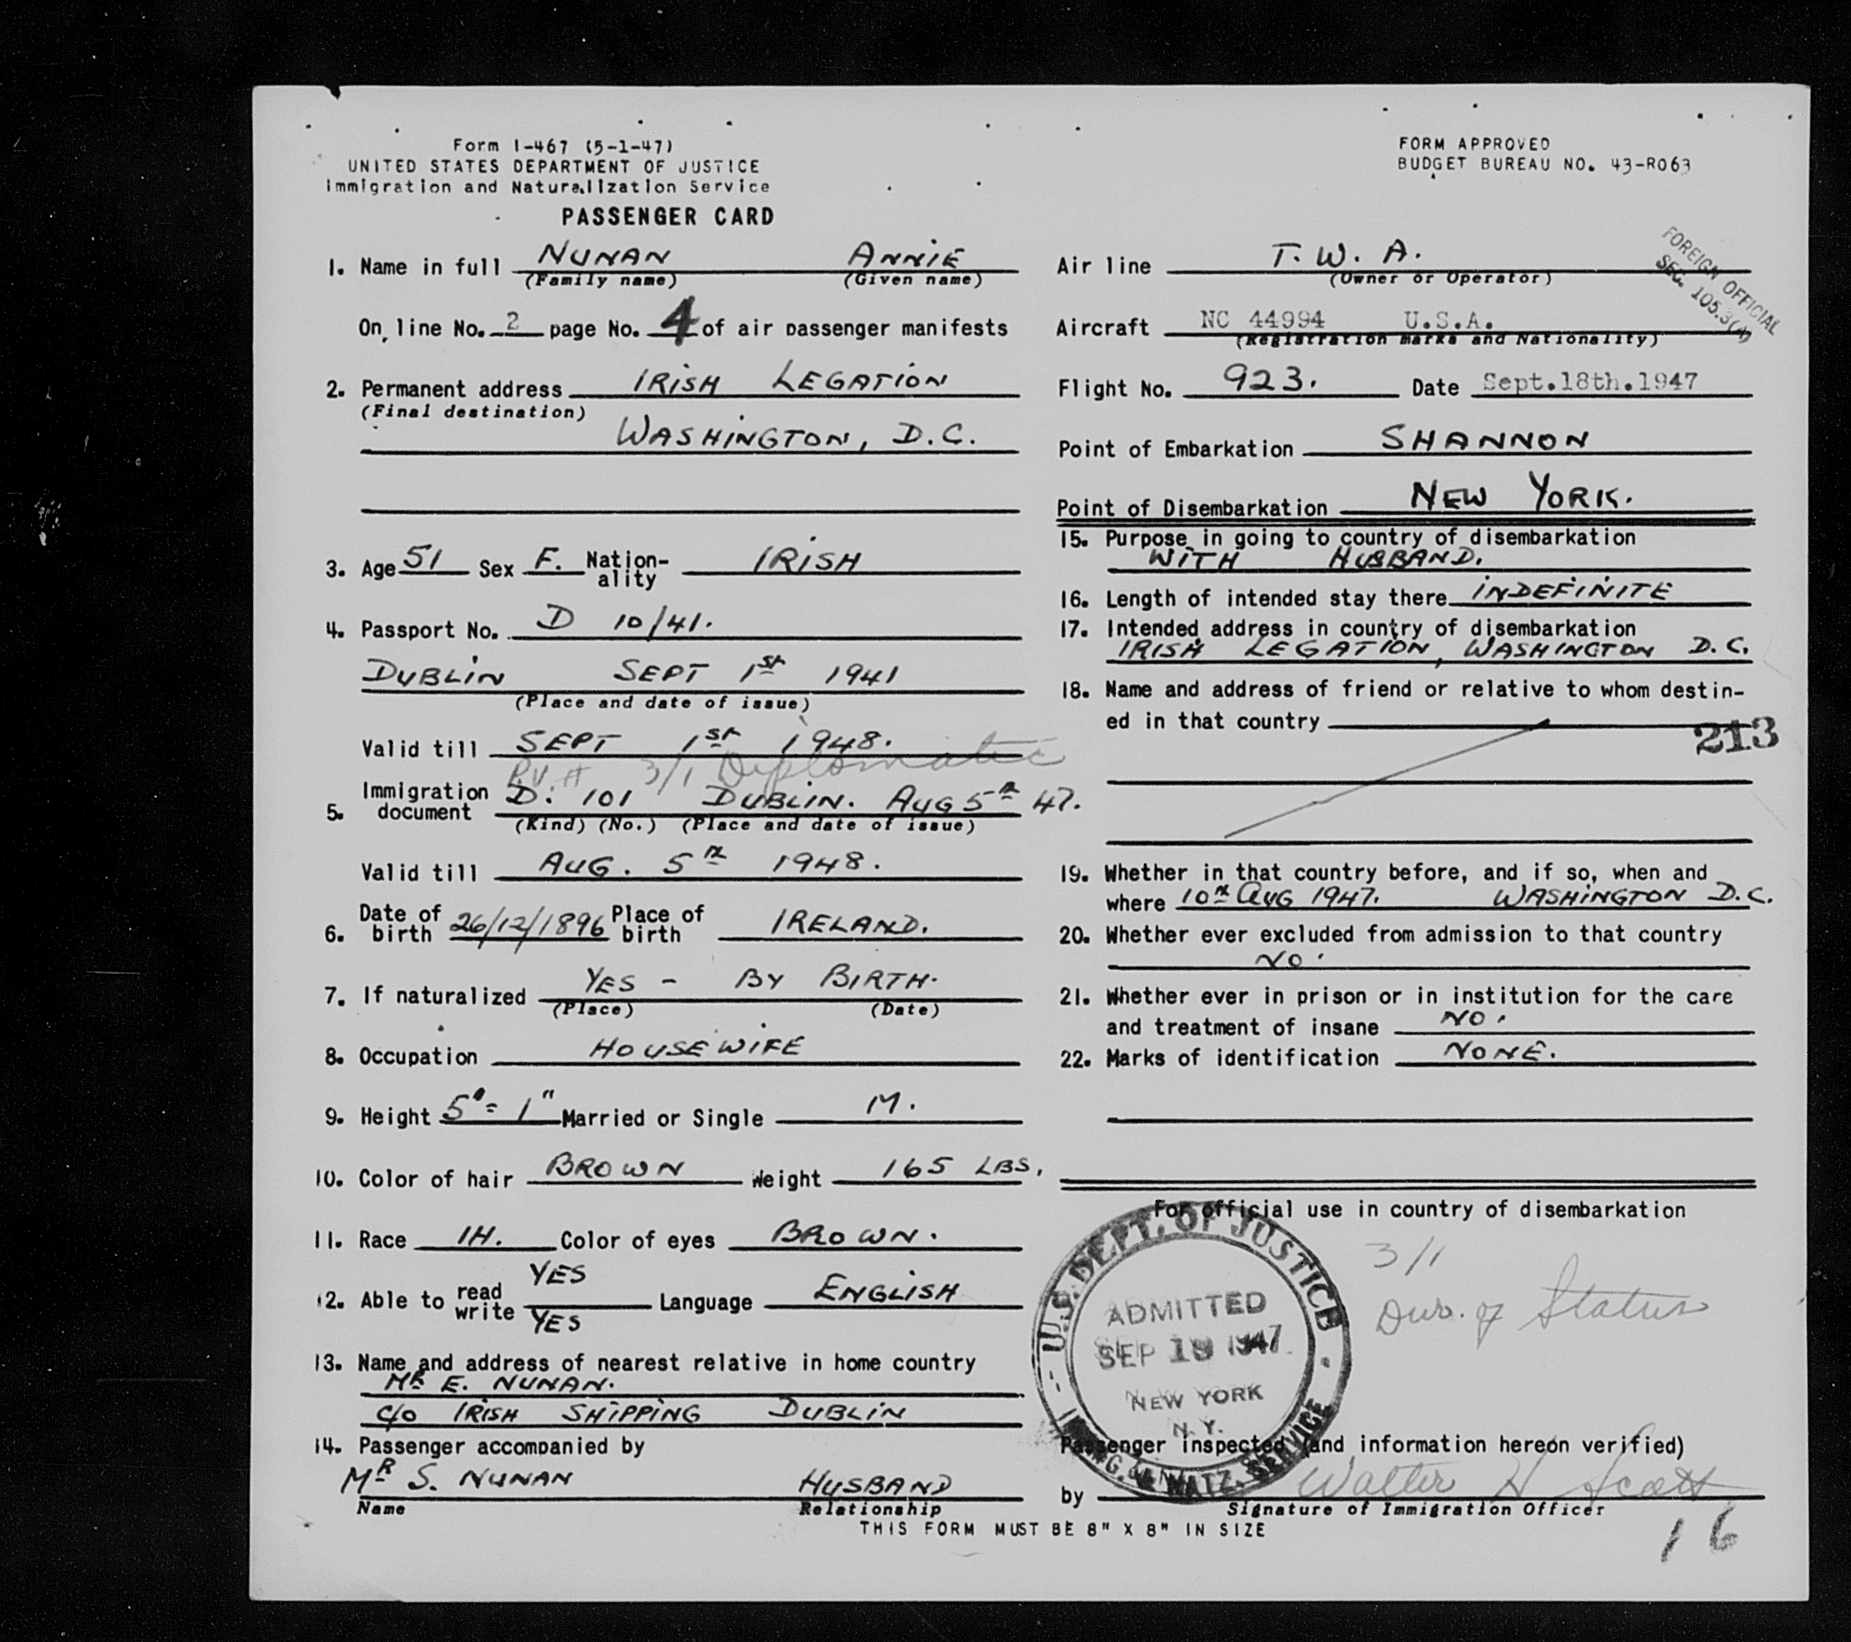 Form I-467 (5-1-47)
UNITED STATES DEPARTMENT OF JUSTICE
Immigration and Naturalization Service
PASSENGER CARD
FORM APPROVED
BUDGET BUREAU NO. 43-R063
FOREIGN OFFICIAL
SEC. 105.3(A)
1. Name in full NUNAN ANNIE
(Family name) (Given name)
On line No. 2 page No. 4 of air passenger manifests
2. Permanent address IRISH LEGATION
(Final destination)
WASHINGTON, D.C.
3. Age 51 Sex F. Nation-ality IRISH
4. Passport No. D 10/41.
DUBLIN SEPT 1st 1941
(Place and date of issue)
Valid till SEPT 1st 1948.
3/1 Diplomatic
5. Immigration document D. 101 DUBLIN. AUG 5th 47.
(Kind) (No.) (Place and date of issue)
Valid till AUG. 5th 1948.
6. Date of birth 26/12/1896 Place of birth IRELAND.
7. If naturalized YES - BY BIRTH.
(Place) (Date)
8. Occupation HOUSEWIFE
9. Height 5' = 1" Married or Single M.
10. Color of hair BROWN Weight 165 LBS.
11. Race IH. Color of eyes BROWN.
12. Able to read YES write YES Language ENGLISH
13. Name and address of nearest relative in home country
MR E. NUNAN.
C/O IRISH SHIPPING DUBLIN
14. Passenger accompanied by
MR S. NUNAN HUSBAND
Name Relationship
Air line T.W.A.
(Owner or Operator)
Aircraft NC 44994 U.S.A.
(Registration marks and Nationality)
Flight No. 923. Date Sept.18th.1947
Point of Embarkation SHANNON
Point of Disembarkation NEW YORK.
15. Purpose in going to country of disembarkation
WITH HUSBAND.
16. Length of intended stay there INDEFINITE
17. Intended address in country of disembarkation
IRISH LEGATION, WASHINGTON D.C.
18. Name and address of friend or relative to whom destin-
ed in that country
213
19. Whether in that country before, and if so, when and
where 10th AUG 1947. WASHINGTON D.C.
20. Whether ever excluded from admission to that country
NO.
21. Whether ever in prison or in institution for the care
and treatment of insane NO.
22. Marks of identification NONE.
For official use in country of disembarkation
3/1
Dur. of Status
U.S. DEPT. OF JUSTICE
ADMITTED
SEP 19 1947
NEW YORK
N.Y.
IMMIG. & NATZ. SERVICE
Passenger inspected (and information hereon verified)
by Walter H Scott
Signature of Immigration Officer
THIS FORM MUST BE 8" X 8" IN SIZE
16